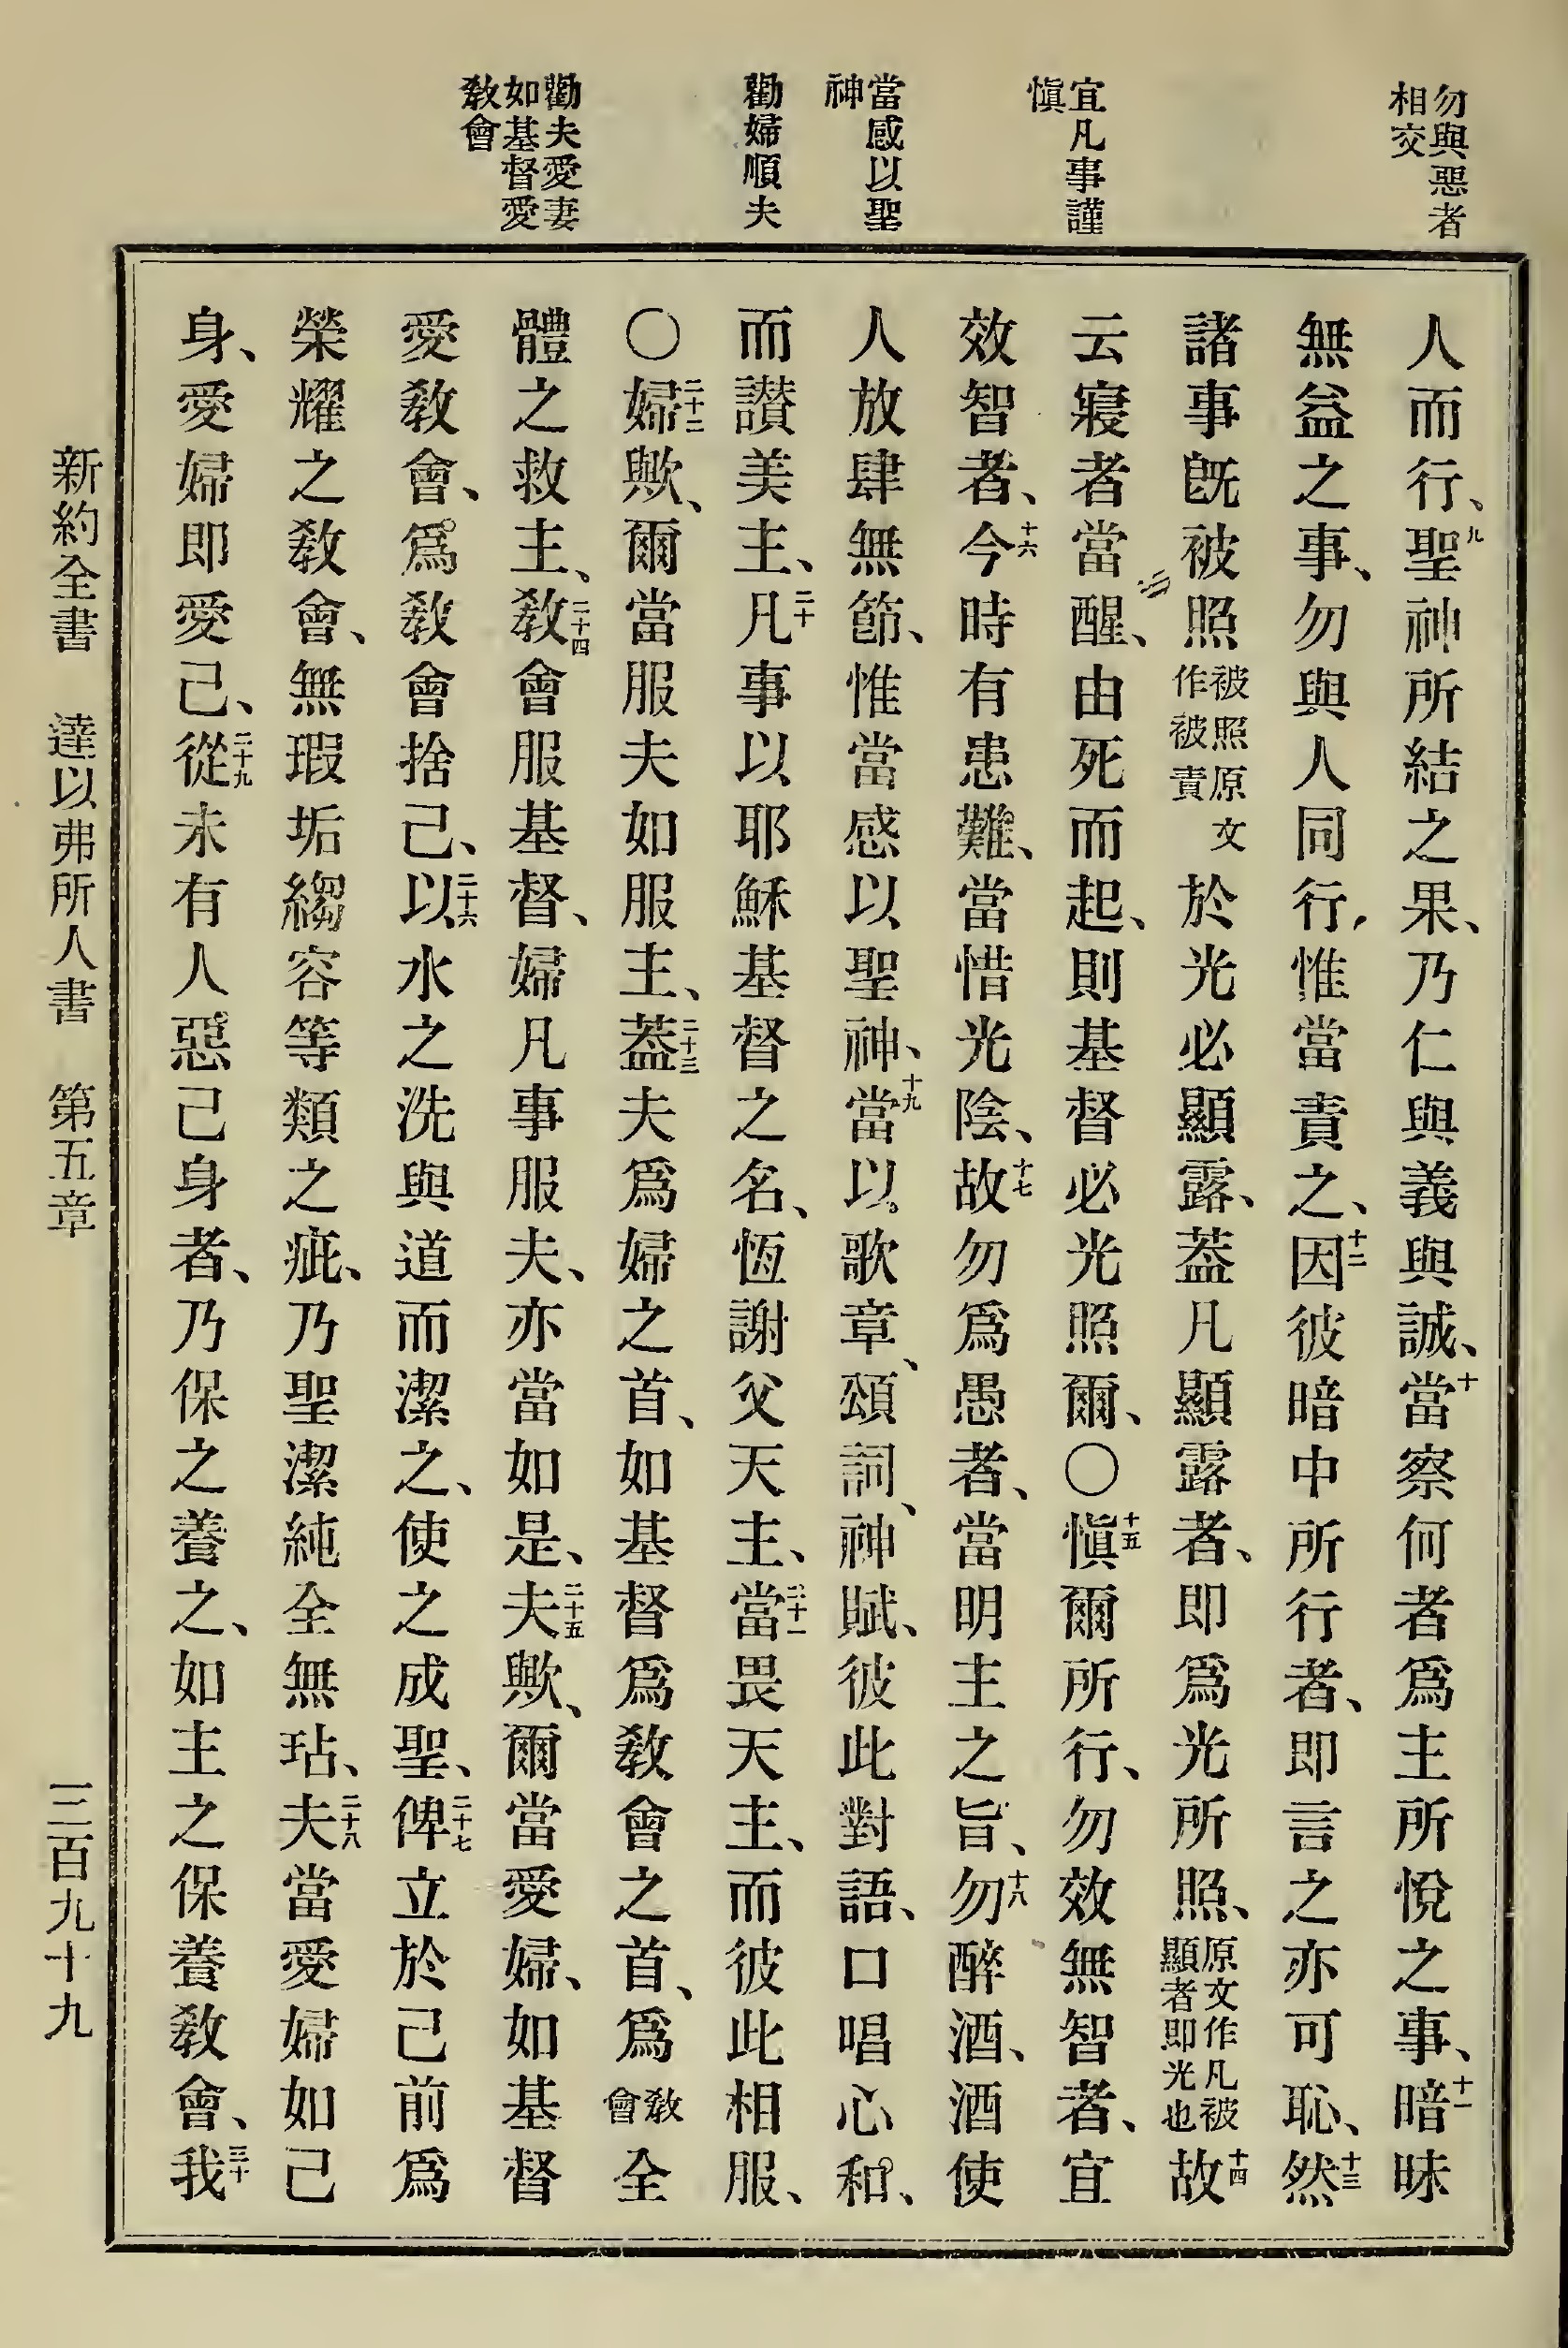 勿與惡者
相交
宜凡事謹
愼
當感以聖
神
勸婦順夫
勸夫愛妻
如基督愛
敎會
人而行、九聖神所結之果、乃仁與義與誠、十當察何者爲主所悅之事、十一暗昧
無益之事、勿與人同行、惟當責之、十二因彼暗中所行者、即言之亦可恥、十三然
諸事旣被照被照原文作被責於光必顯露、葢凡顯露者、即爲光所照、原文作凡被顯者即光也十四故
云寢者當醒、由死而起、則基督必光照爾、○十五愼爾所行、勿效無智者、宜
效智者、十六今時有患難、當惜光陰、十七故勿爲愚者、當明主之旨、十八勿醉酒、酒使
人放肆無節、惟當感以聖神、十九當以歌章、頌詞、神賦、彼此對語、口唱心和、
而讚美主、二十凡事以耶穌基督之名、恆謝父天主、二十一當畏天主、而彼此相服、
○二十二婦歟、爾當服夫如服主、二十三葢夫爲婦之首、如基督爲敎會之首、爲敎會全
體之救主、二十四敎會服基督、婦凡事服夫、亦當如是、二十五夫歟、爾當愛婦、如基督
愛敎會、爲敎會捨己、二十六以水之洗與道而潔之、使之成聖、二十七俾立於己前爲
榮耀之敎會、無瑕垢縐容等類之疵、乃聖潔純全無玷、二十八夫當愛婦如己
身、愛婦即愛己、二十九從未有人惡己身者、乃保之養之、如主之保養敎會、三十我
新約全書 達以弗所人書 第五章 三百九十九